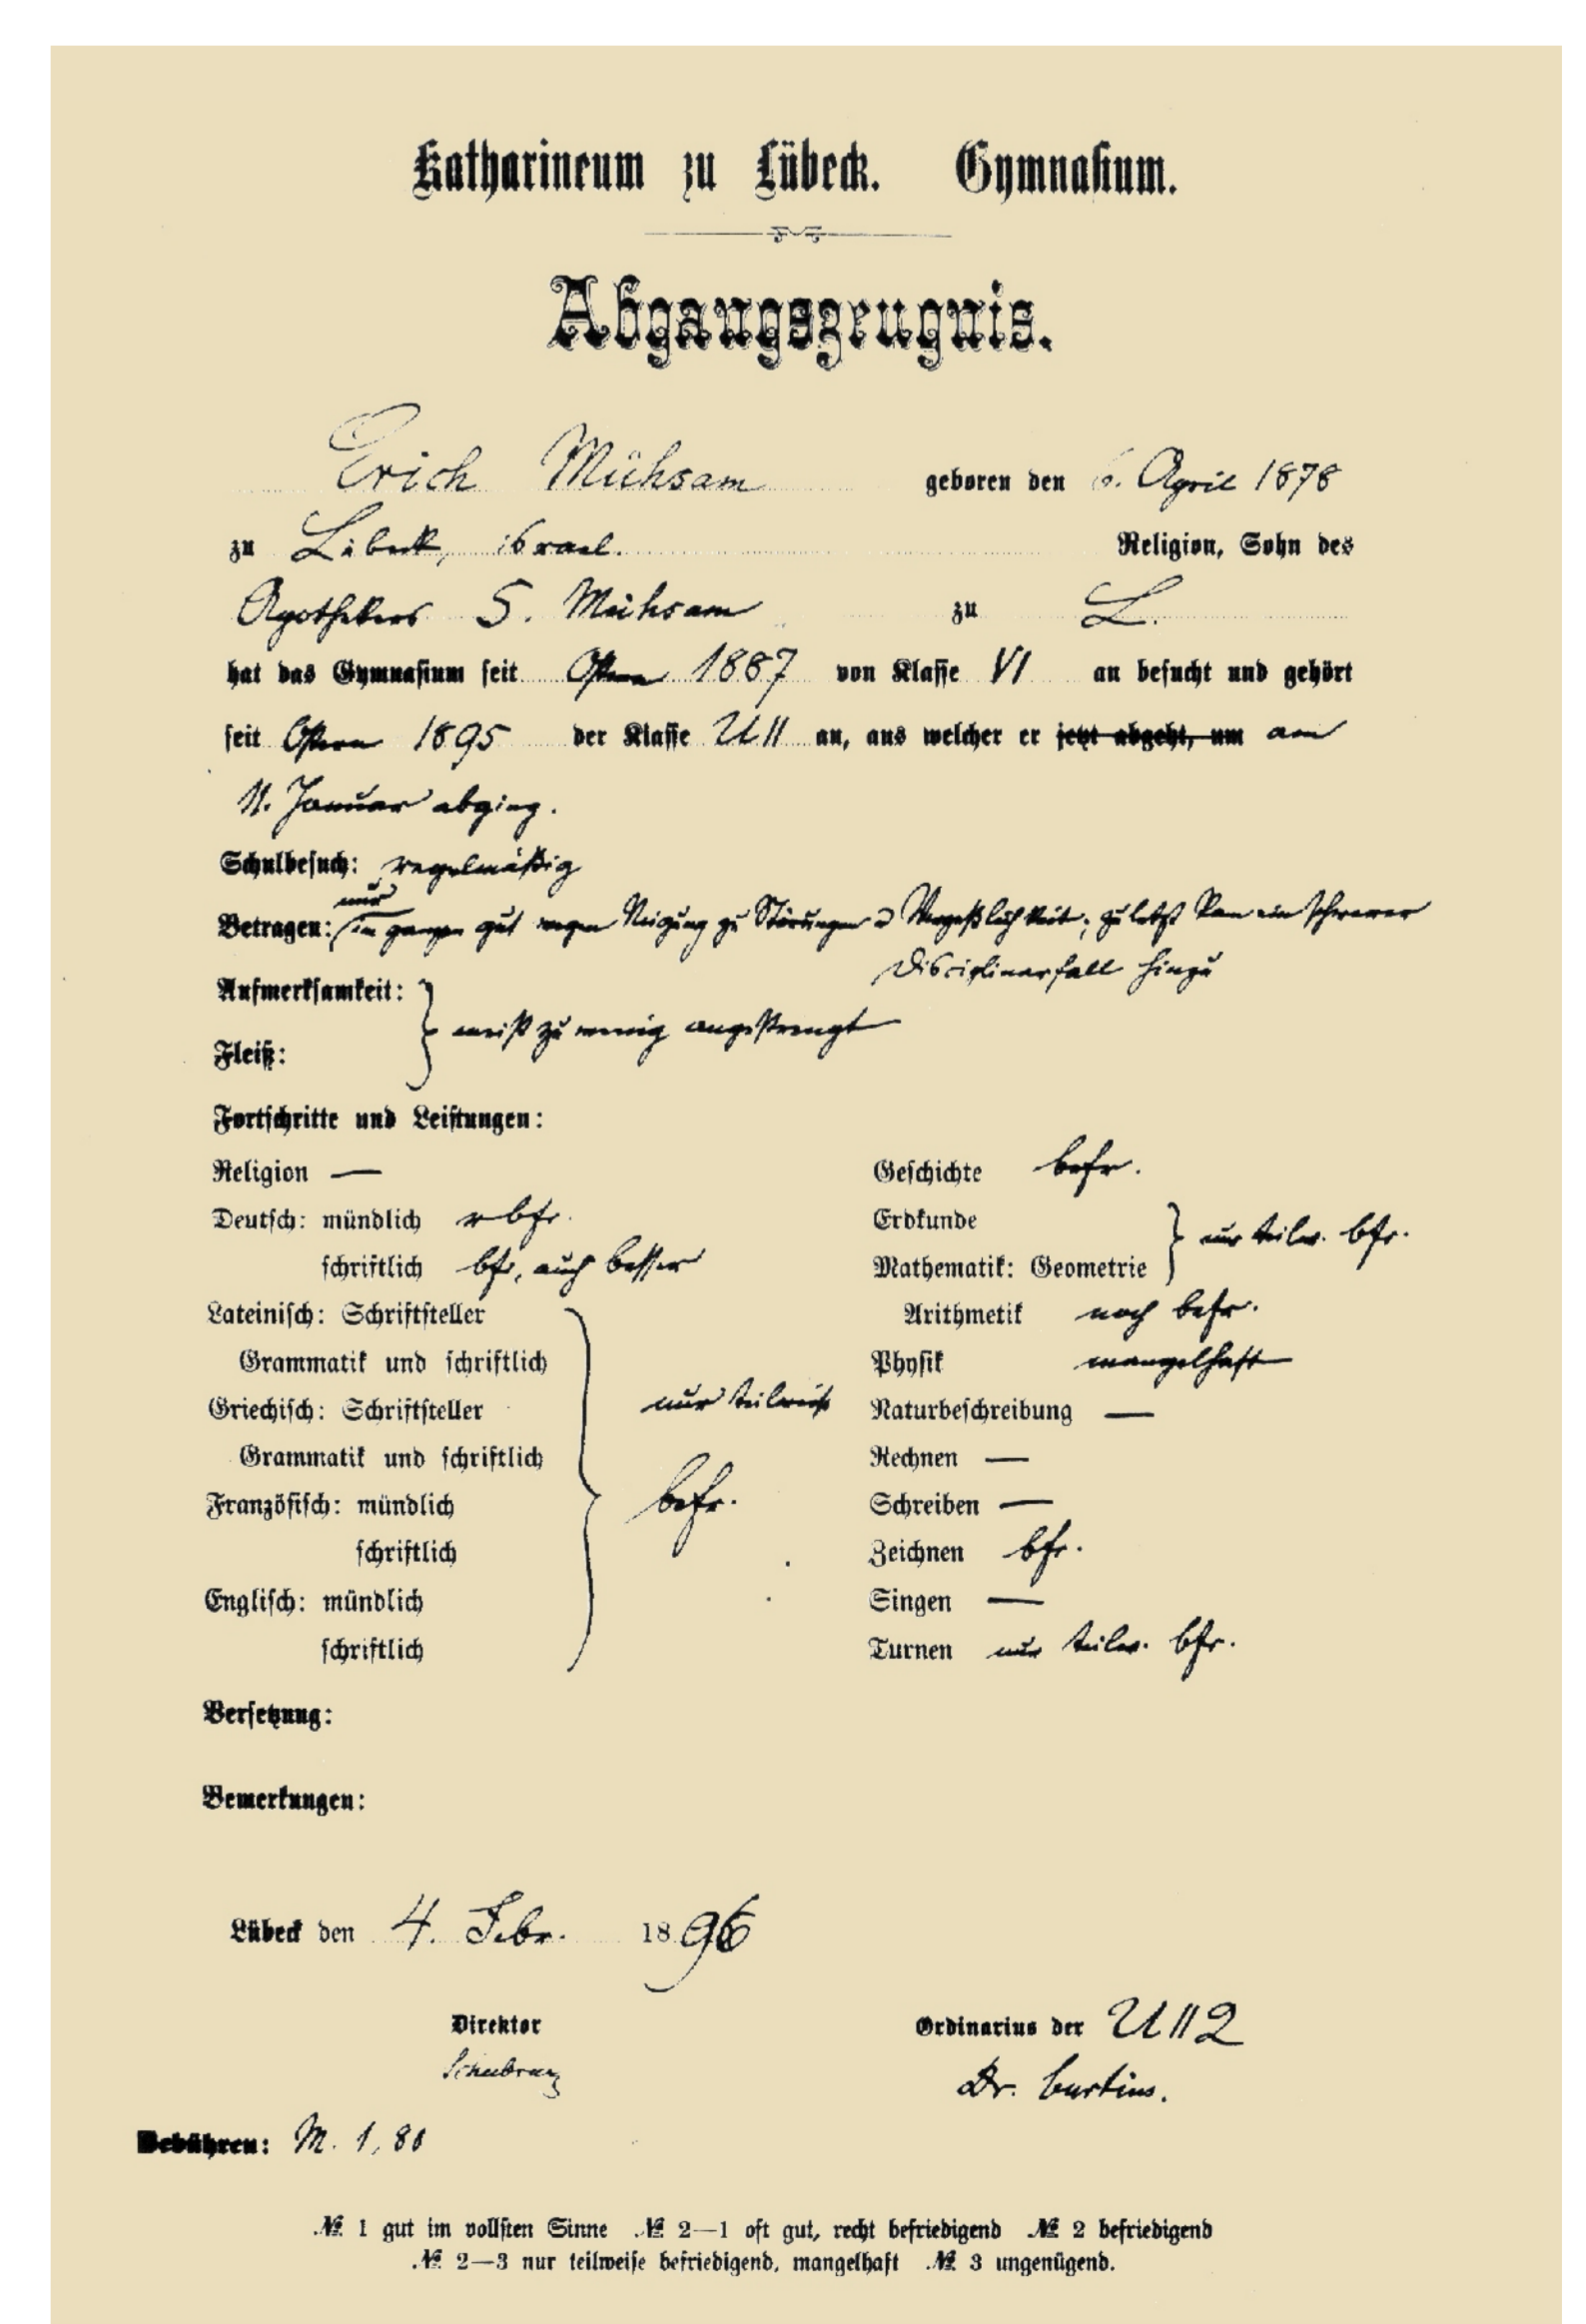 Katharineum zu Lübeck. Gymnasium.
Abgangszeugnis.
Erich Mühsam geboren den 6. April 1878
zu Lübeck, israel. Religion, Sohn des
Apothekers S. Mühsam zu L.
hat das Gymnasium seit Ostern 1887 von Klasse VI an besucht und gehört
seit Ostern 1895 der Klasse UII an, aus welcher er jetzt abgeht, um am
11. Januar abging.
Schulbesuch: regelmäßig
nur
Betragen: im ganzen gut wegen Neigung zu Störungen u Vergeßlichkeit; zuletzt kam ein schwerer
Disciplinarfall hinzu
Aufmerksamkeit:
meist zu wenig angestrengt
Fleiß:
Fortschritte und Leistungen:
Religion —
Deutsch: mündlich r bfr.
schriftlich bfr, auch besser
Lateinisch: Schriftsteller
Grammatik und schriftlich
Griechisch: Schriftsteller
Grammatik und schriftlich
Französisch: mündlich
schriftlich
Englisch: mündlich
schriftlich
nur teilweise
befr.
Geschichte befr.
Erdkunde
Mathematik: Geometrie
nur teilw. bfr.
Arithmetik noch befr.
Physik mangelhaft
Naturbeschreibung —
Rechnen —
Schreiben —
Zeichnen bfr.
Singen —
Turnen nur teilw. bfr.
Versetzung:
Bemerkungen:
Lübeck den 4. Febr. 1896
Direktor
Schubring
Ordinarius der UII2
Dr. Curtius.
Gebühren: M. 1,80
№ 1 gut im vollsten Sinne № 2—1 oft gut, recht befriedigend № 2 befriedigend
№ 2—3 nur teilweise befriedigend, mangelhaft № 3 ungenügend.